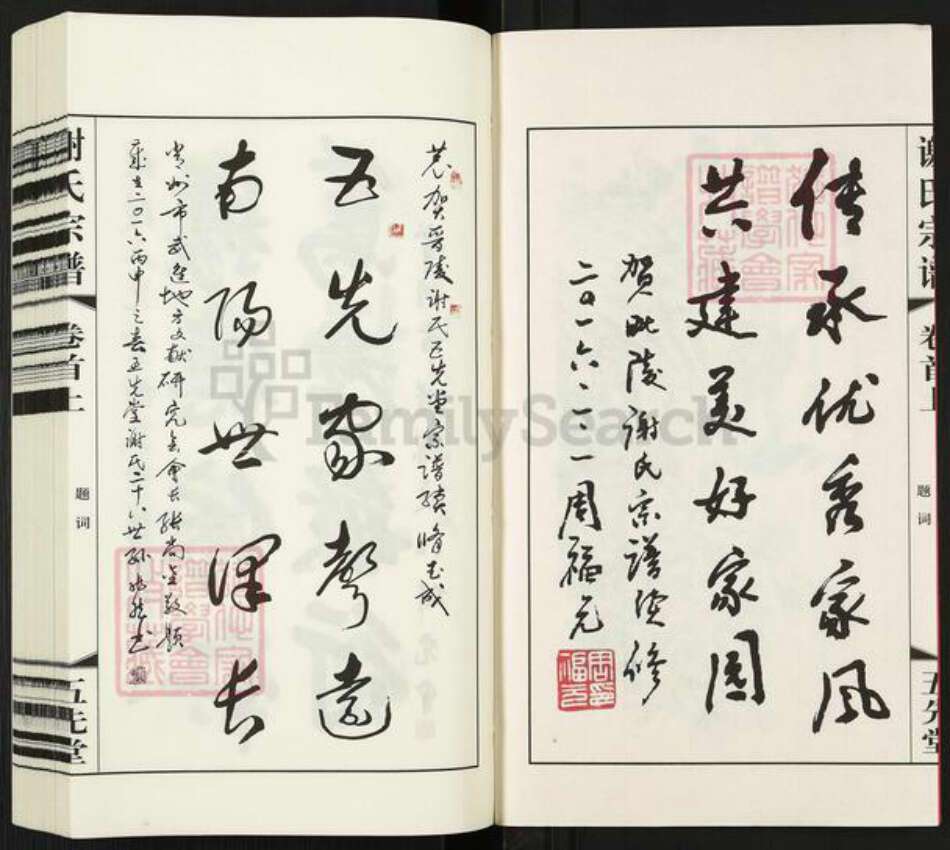 谢氏宗谱 卷首上 题词 五先堂
传承优秀家风
共建美好家园
贺毗陵谢氏宗谱续修
二〇一六.二.一周福元
周福元印
恭贺晋陵谢氏五先堂宗谱续修告成
五先家声远
南阳世泽长
常州市武进地方文献研究会会长张尚金敬题
岁在二〇一六丙申之春五先堂谢氏二十六世孙
谢氏宗谱 卷首上 题词 五先堂
FamilySearch